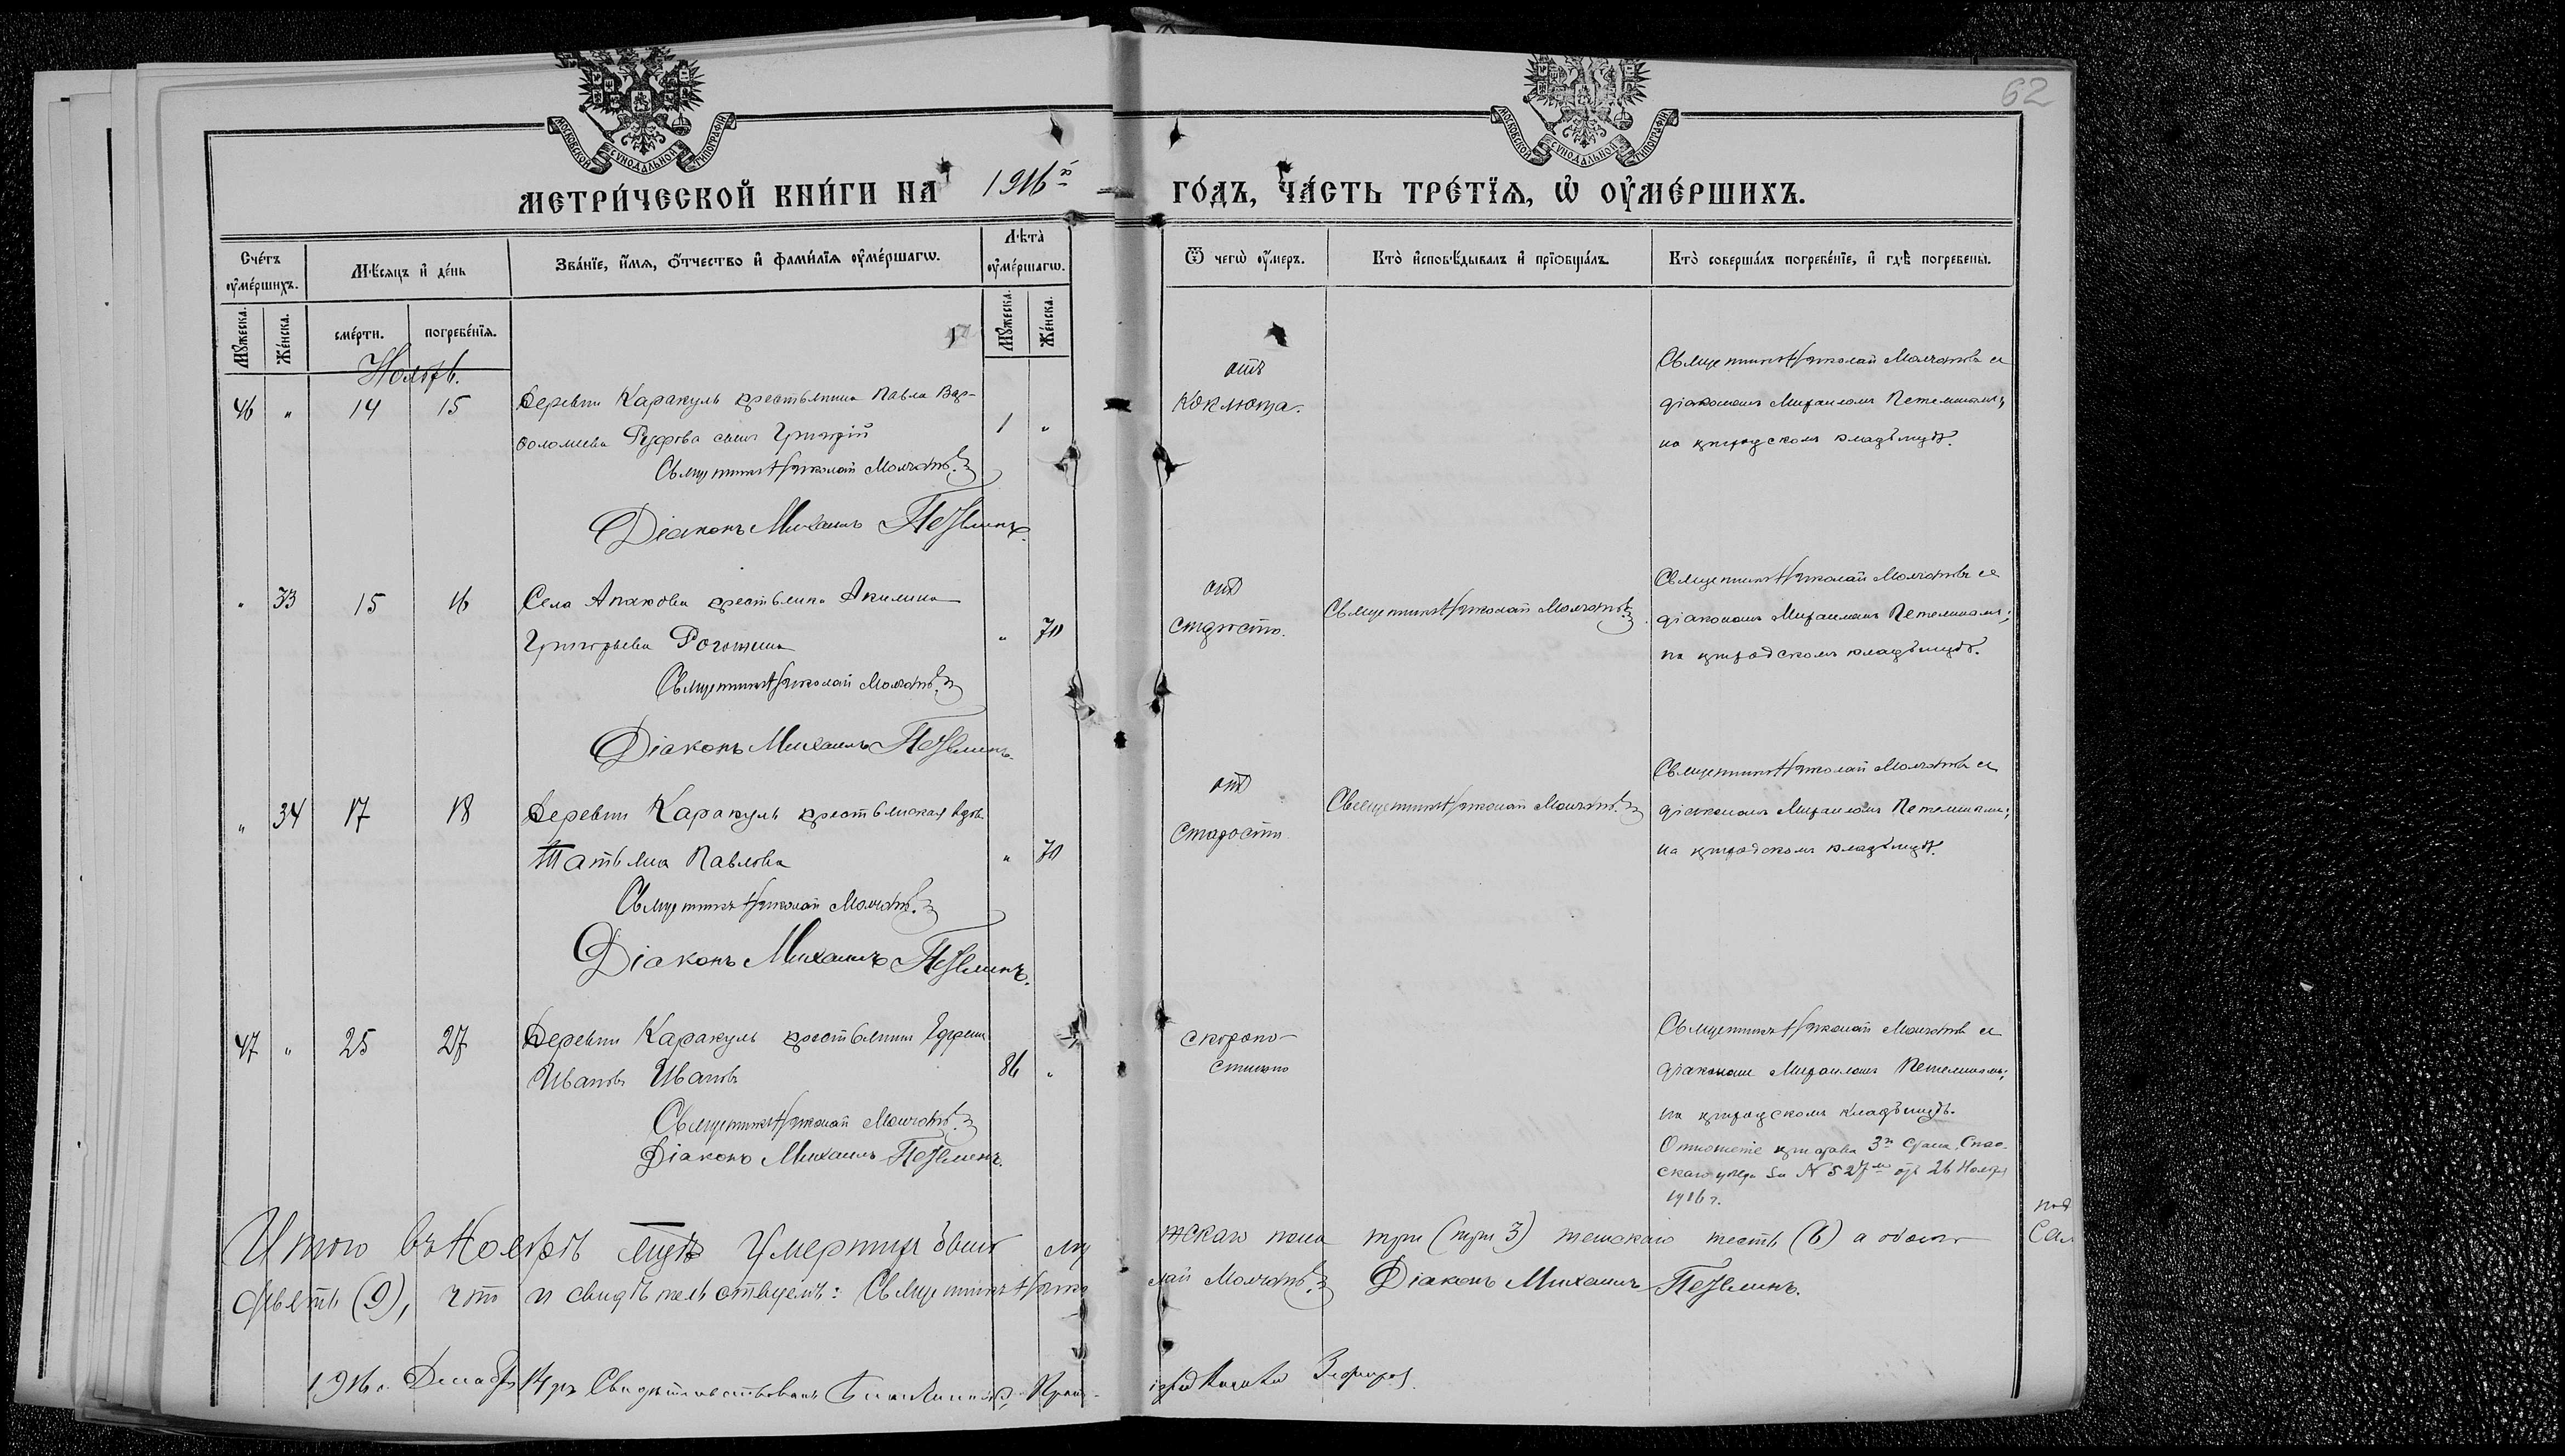 62
МОСКОВСКОЙ СѴНОДАЛЬНОЙ ТИПОГРАФІИ
МОСКОВСКОЙ СѴНОДАЛЬНОЙ ТИПОГРАФІИ
МЕТРИ́ЧЕСКОЙ КНИ́ГИ НА 1916й ГО́ДЪ, ЧА́СТЬ ТРЕ́ТЇѦ, Ѡ҆ ОУ҆МЕ́РШИХЪ.
Сче́тъ оу҆ме́ршихъ.
Мѣ́сяцъ и҆ де́нь
Зва́нїе, и҆́мѧ, ѻ҆́тчество и҆ фами́лїѧ оу҆ме́ршагѡ.
Лѣта̀ оу҆ме́ршагѡ.
Ѿ чегѡ̀ оу҆́меръ.
Кто̀ и҆сповѣ́дывалъ и҆ прїѡбща́лъ.
Кто̀ соверша́лъ погребе́нїе, и҆ гдѣ̀ погребены̀.
Мꙋ́жеска.
Же́нска.
сме́рти.
погребе́нїѧ.
Мꙋ́жеска.
Же́нска.
Ноябрь.
46 " 14 15
Деревни Каракуль крестьянина Павла Вар-
фоломеева сынъ Григорій
1 "
Священникъ Николай Молчановъ
Діаконъ Михаилъ Петелинъ.
отъ
коклюша.
Священникъ Николай Молчановъ съ
діакономъ Михаиломъ Петелинымъ;
на приходскомъ кладбищѣ.
" 33 15 16
Села Апакова крестьянка Акилина
Григорьева Рогожина
" 70
Священникъ Николай Молчановъ
Діаконъ Михаилъ Петелинъ.
отъ
старости.
Священникъ Николай Молчановъ
Священникъ Николай Молчановъ съ
діакономъ Михаиломъ Петелинымъ;
на приходскомъ кладбищѣ.
" 34 17 18
Деревни Каракуль крестьянская вдова
Татьяна Павлова
" 70
Священникъ Николай Молчановъ
Діаконъ Михаилъ Петелинъ.
отъ
старости
Священникъ Николай Молчановъ
Священникъ Николай Молчановъ съ
діакономъ Михаиломъ Петелинымъ;
на приходскомъ кладбищѣ.
47 " 25 27
Деревни Каракуль крестьянинъ Ефремъ
Ивановъ Ивановъ
86 "
Священникъ Николай Молчановъ
Діаконъ Михаилъ Петелинъ.
скоропо-
стижно
Священникъ Николай Молчановъ съ
діакономъ Михаиломъ Петелинымъ;
на приходскомъ кладбищѣ.
Отношеніе пристава 3го стана Спас-
скаго уѣзда за № 527мъ отъ 26 Ноября
1916 г.
Итого въ Ноябрѣ мцѣ умершихъ было мужскаго пола три (три 3) женскаго шесть (6) а обоего
девять (9), что и свидѣтельствуемъ: Священникъ Николай Молчановъ Діаконъ Михаилъ Петелинъ.
1916 г. Декабря 14 дня Свидѣтельствовалъ